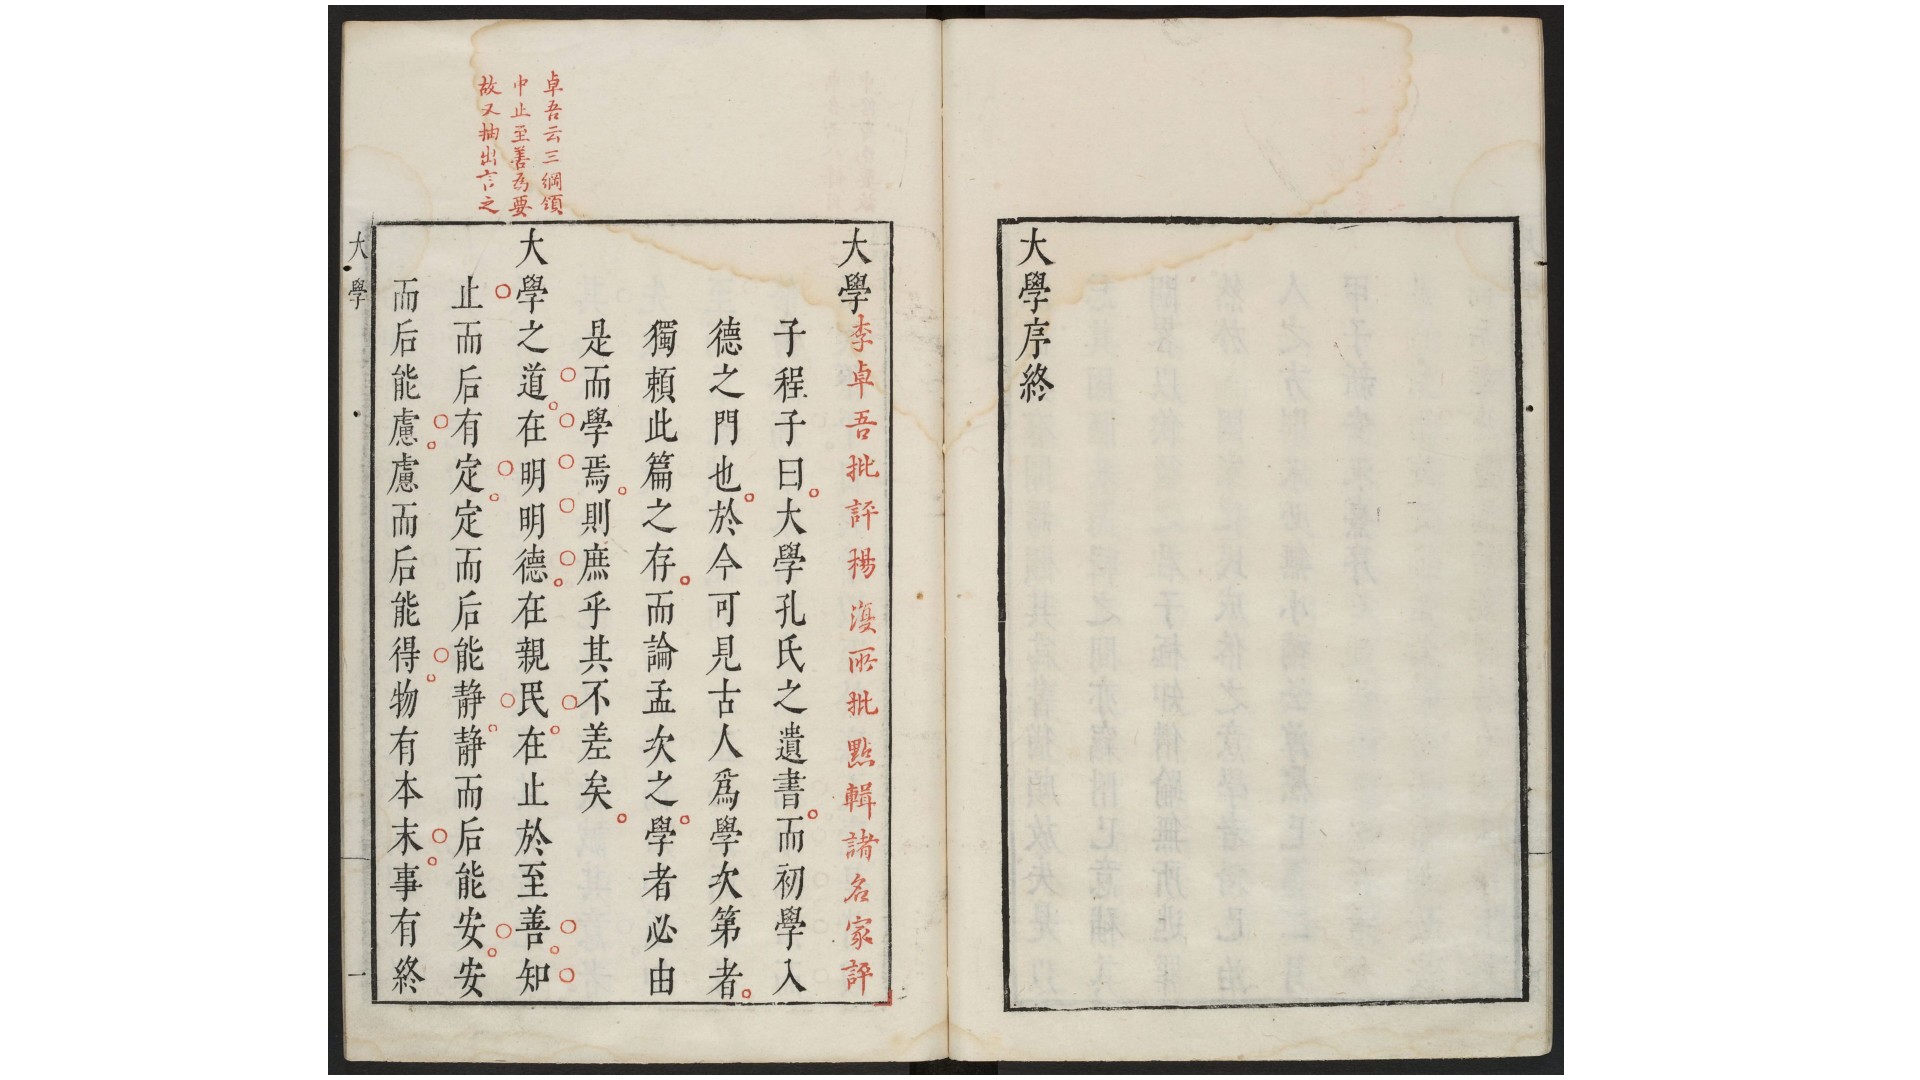 大學序終
大學李卓吾批評楊復所批點輯諸名家評
子程子曰大學孔氏之遺書而初學入
德之門也於今可見古人爲學次第者
獨賴此篇之存而論孟次之學者必由
是而學焉則庶乎其不差矣
卓吾云三綱領
中止至善為要
故又抽出言之
大學之道在明明德在親民在止於至善知
止而后有定定而后能靜靜而后能安安
而后能慮慮而后能得物有本末事有終
大學
一